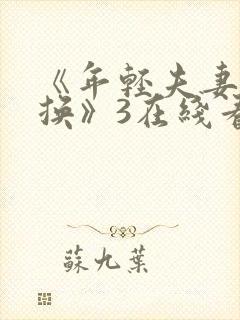 《年轻夫妻
换》3在线看
蘇九葉